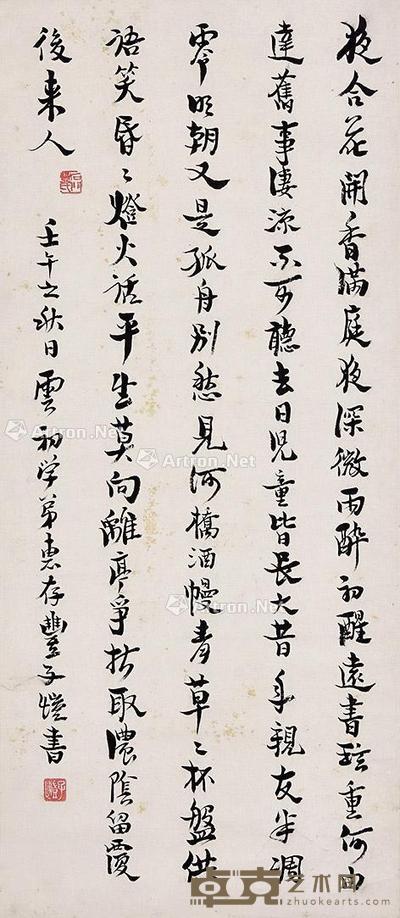 夜合花開香滿庭夜深微雨醉初醒遠書珍重何由
達舊事淒涼不可聽去日兒童皆長大昔年親友半凋
零明朝又是孤舟別愁見河橋酒幔青草〻杯盤供
語笑昏〻燈火話平生莫向離亭爭折取濃陰留覆
後来人
壬午之秋日雲初学弟惠存豐子愷書
Artron.Net
Artron.Net
Artron.Net
Artron.Net
Artron.Net
Artron.Net
卓克艺术网
zhuokearts.com